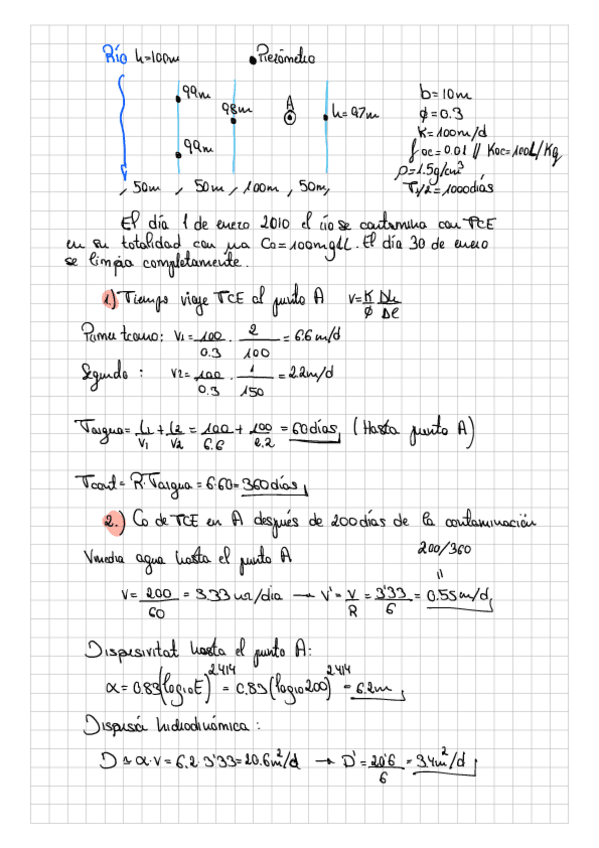 Río h=100m
Piezómetro
99m
98m
A
h=97m
99m
50m, 50m, 100m, 50m
b=10m
φ=0.3
K=100m/d
foc=0.01 // Koc=100L/Kg
ρ=1.5g/cm³
T1/2=1000días
El día 1 de enero 2010 el río se contamina con TCE
en su totalidad con una Co=100mg/L. El día 30 de enero
se limpia completamente.
1.) Tiempo viaje TCE al punto A V=K/φ Δh/Δl
Primer tramo: V1=100/0.3 · 2/100=6.6m/d
Segundo: V2=100/0.3 · 1/150=2.2m/d
Tagua=L1/V1+L2/V2=100/6.6+100/2.2=60días, (Hasta punto A)
Tcont=R·Tagua=6·60=360días
2.) Co de TCE en A después de 200días de la contaminación
Vmedia agua hasta el punto A
200/360
V=200/60=3.33m/dia → V'=V/R=3'33/6=0.55m/d
Dispersivitat hasta el punto A:
α=0.83(log10E)^2.414=0.83(log10200)^2.414=6.2m
Dispersió hidrodinámica:
D≈α·v=6.2·3'33=20.6m²/d → D'=20'6/6=3.4m²/d